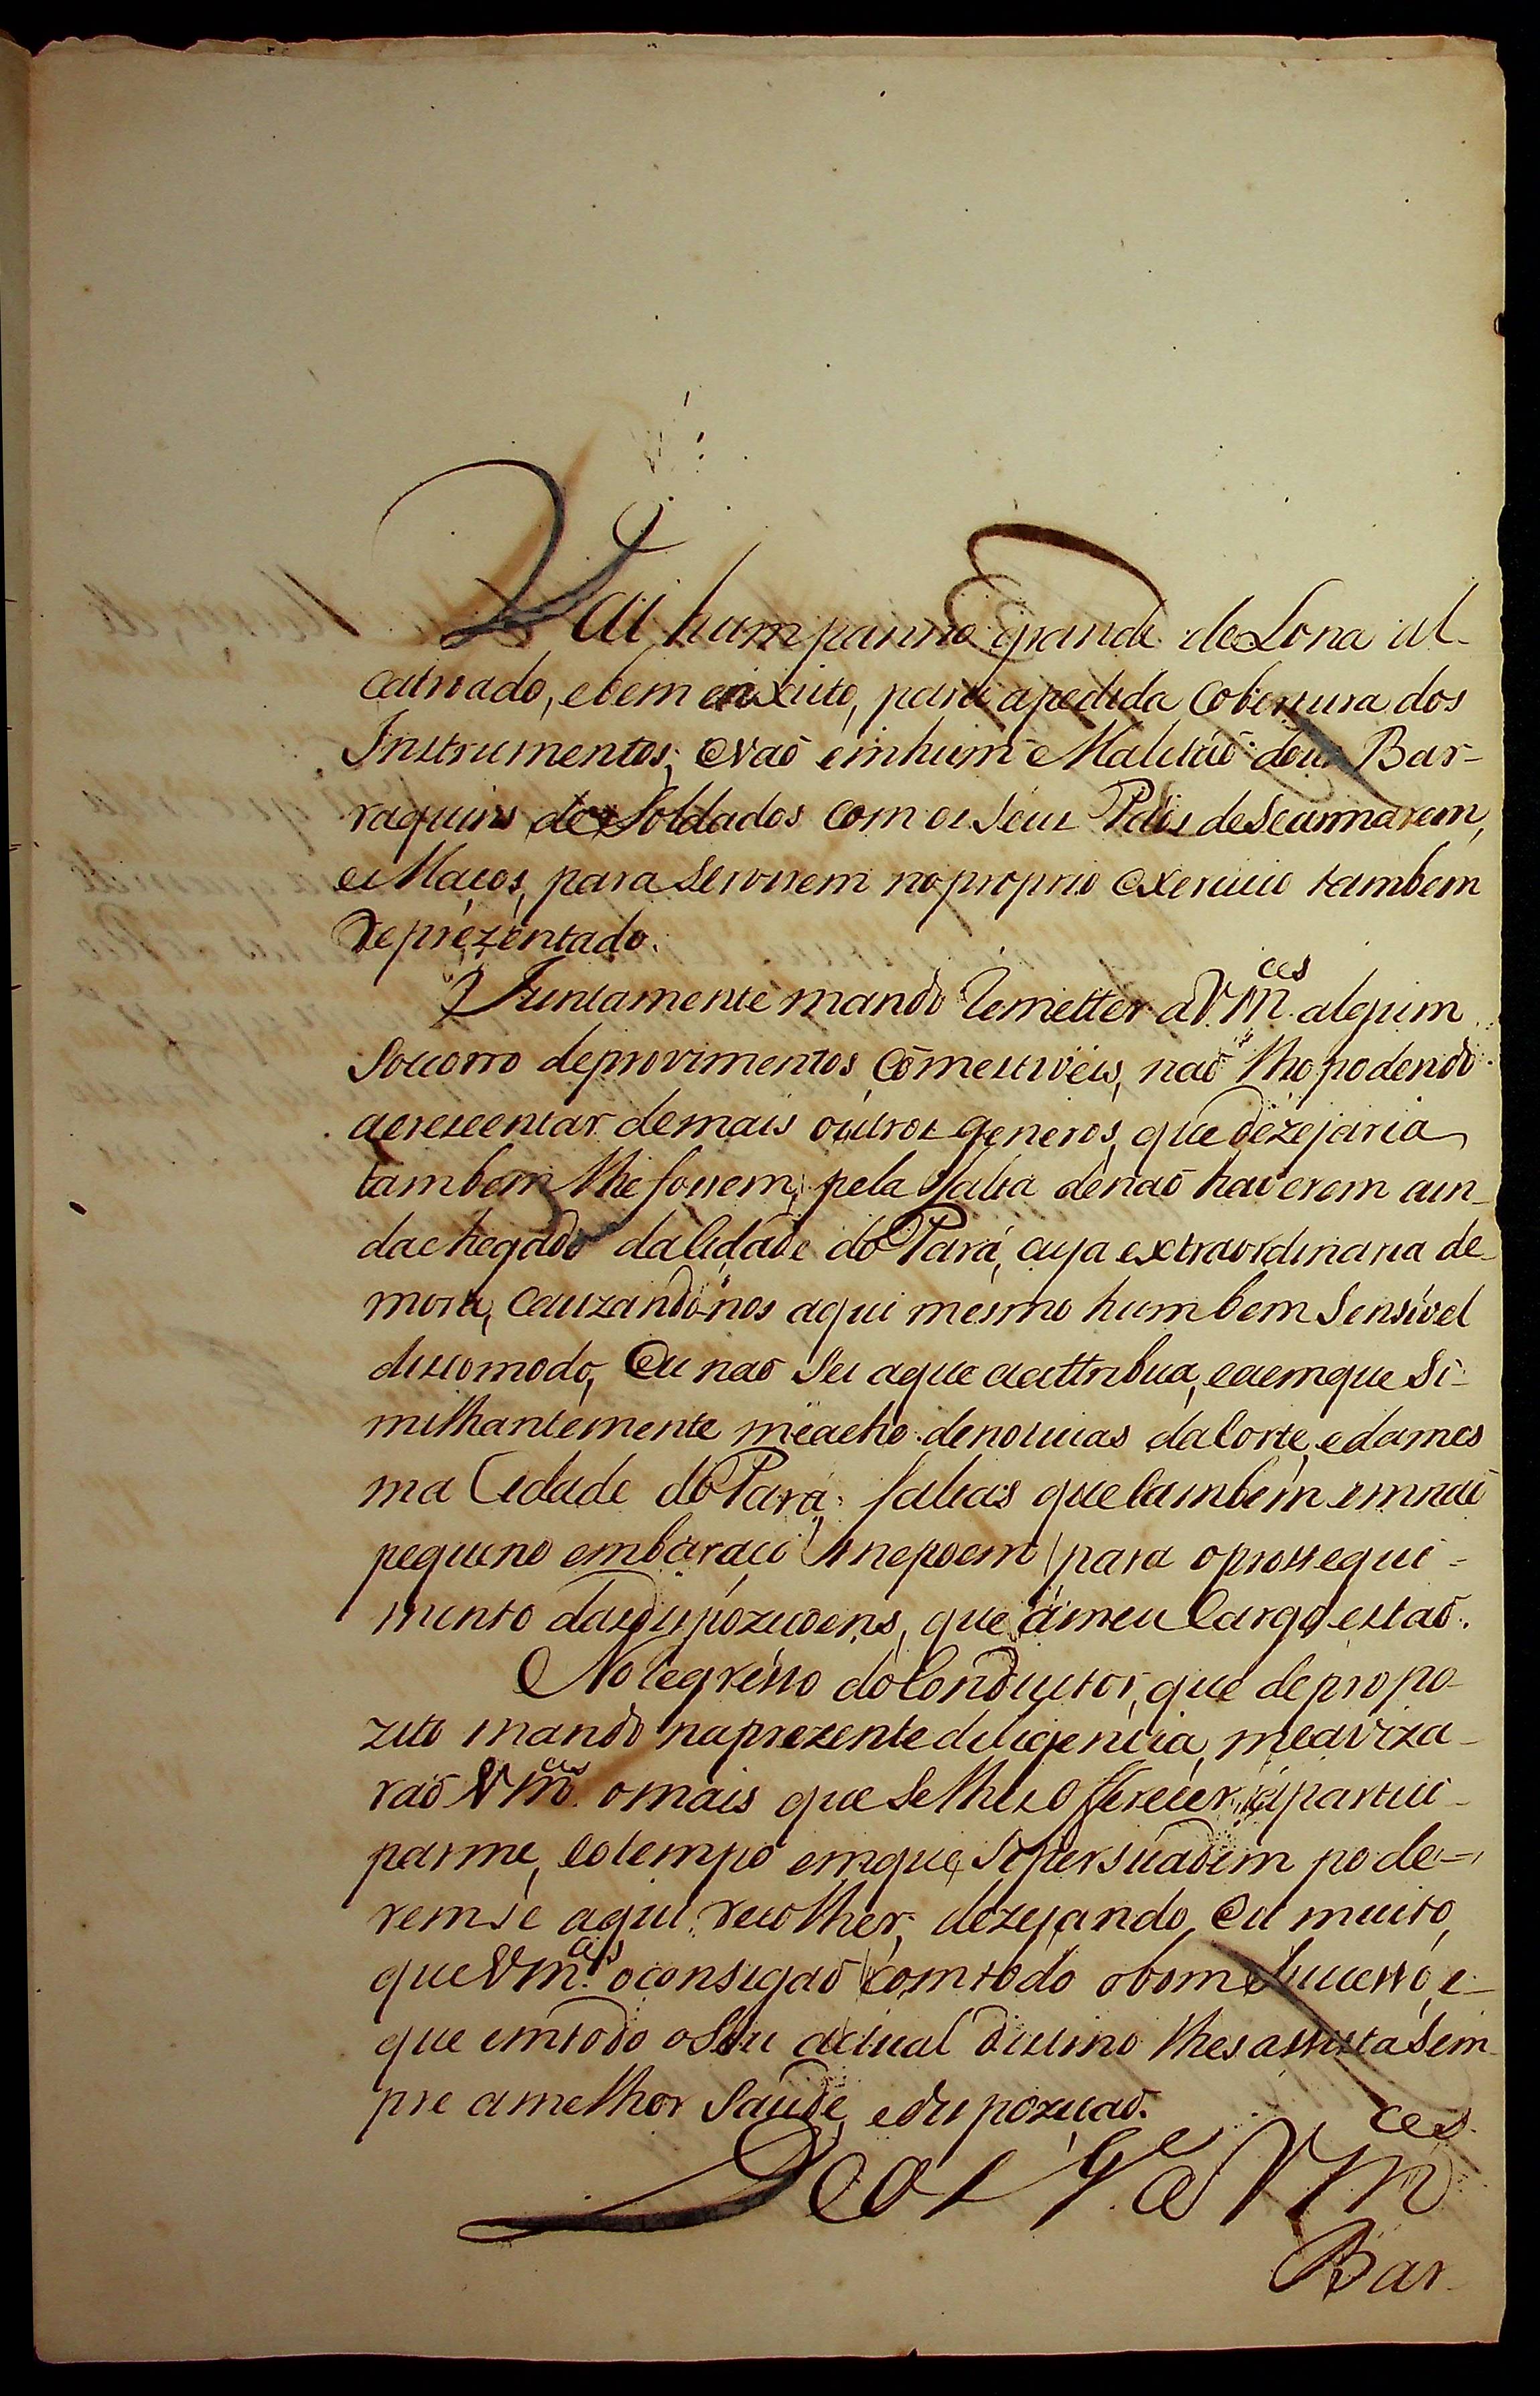 Vai hum panno grande de Lona al-
catroado, e bem enxuto, para a pedida Cobertura dos
Instrumentos; e vaõ em hum Malotaõ dous Bar-
raquins de Soldados com os seus Páos de Se armarem,
e Maços, para Servirem no proprio exercicio tambem
reprezentado.
Juntamente mando remetter a Vm.ces algum
Socorro de provimentos Comestiveis, naõ lho podendo
acrescentar de mais outros generos, que dezejaria
tambem lhe fossem, pela falta de naõ haverem ain-
da chegado da Cidade do Pará, cuja extraordinaria de-
mora, Cauzando-nos aqui mesmo hum bem Sensivel
discomodo, Eu naõ Sei a que a attribua, e a em que Si-
milhantemente me acho de noticias da Corte, e da mes
ma Cidade do Pará; faltas que tambem em naõ
pequeno embaraço me poem para o prossegui-
mento das dispoziçoens, que á meu Cargo estaõ.
No regresso do Conductor, que de propo-
zito mando na prezente diligencia, me aviza-
raõ Vm.ces o mais que Se lhes Offerecer á partici-
parme, e o tempo em que Se persuadem pode-
remse aqui recolher, dezejando Eu muito,
que Vm.ces o consigaõ com todo o bom Successo, e
que em todo o Seu actual distino lhes assista Sem
pre a melhor Saude, e dispoziçaõ.
Deos G.e a Vm.ces
Bar-